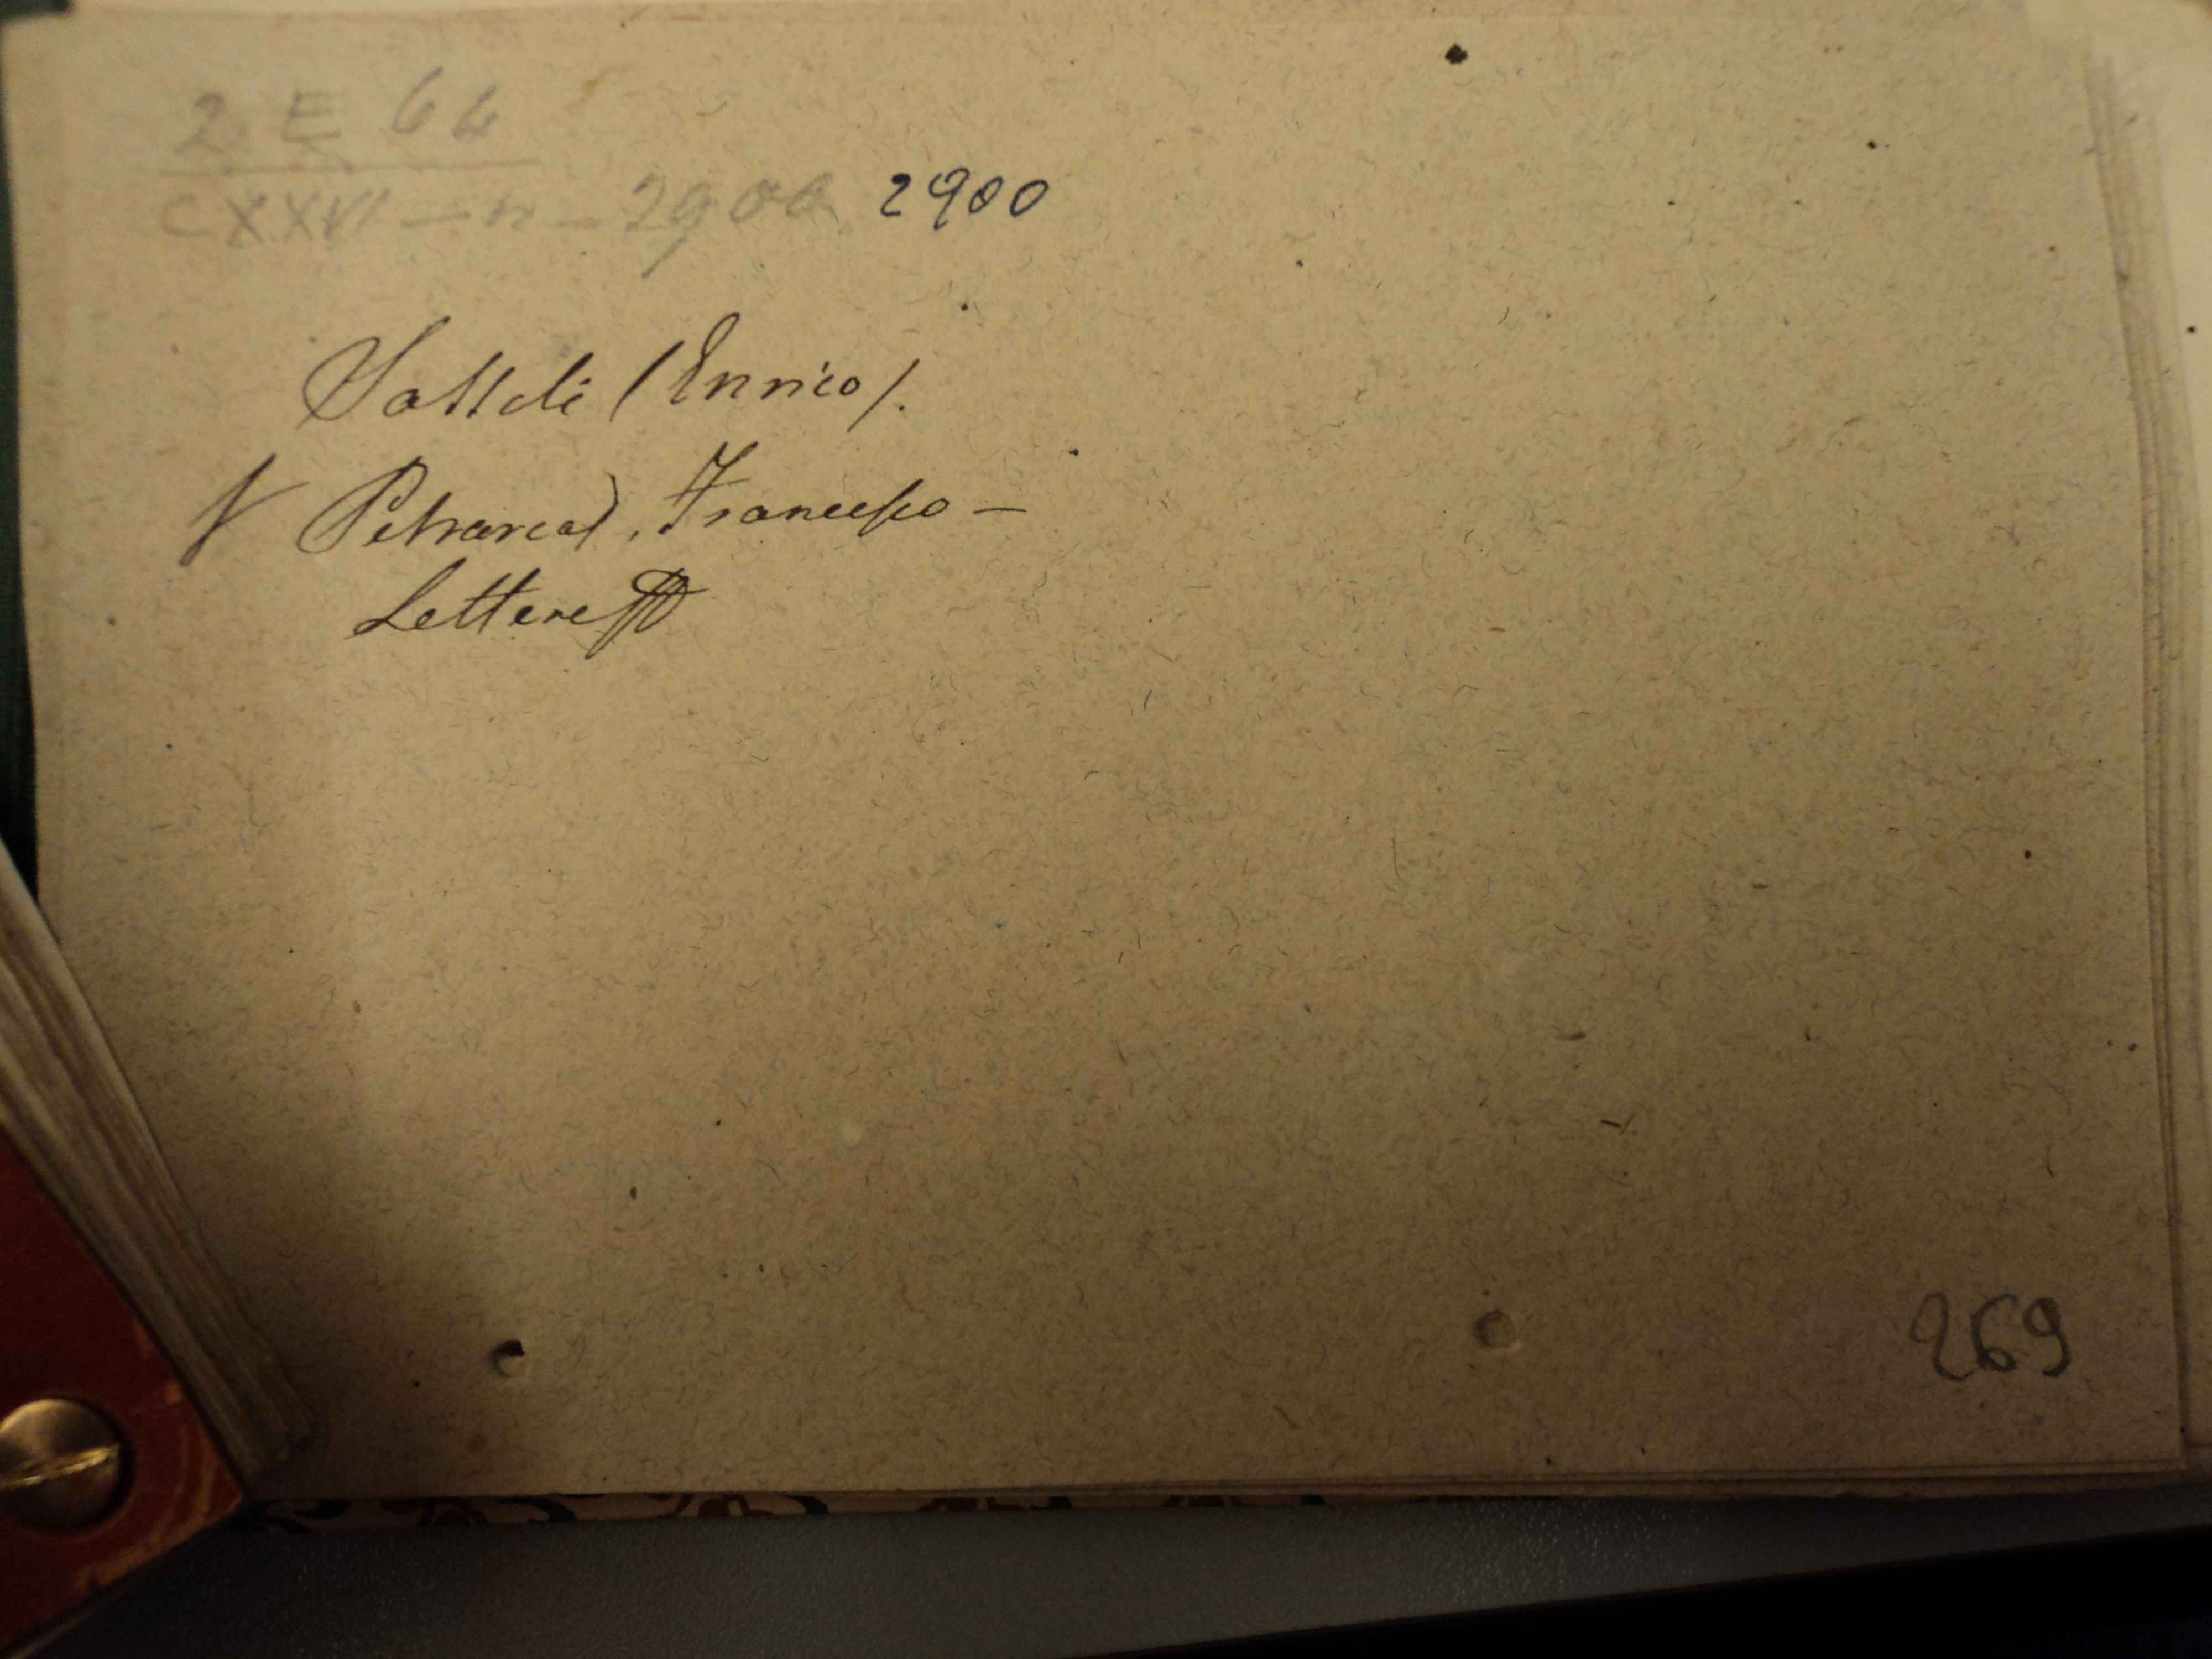 2 E 64
CXXVI – n – 2900 2900
Sassoli (Enrico).
V Petrarca), Francesco –
Lettere
269